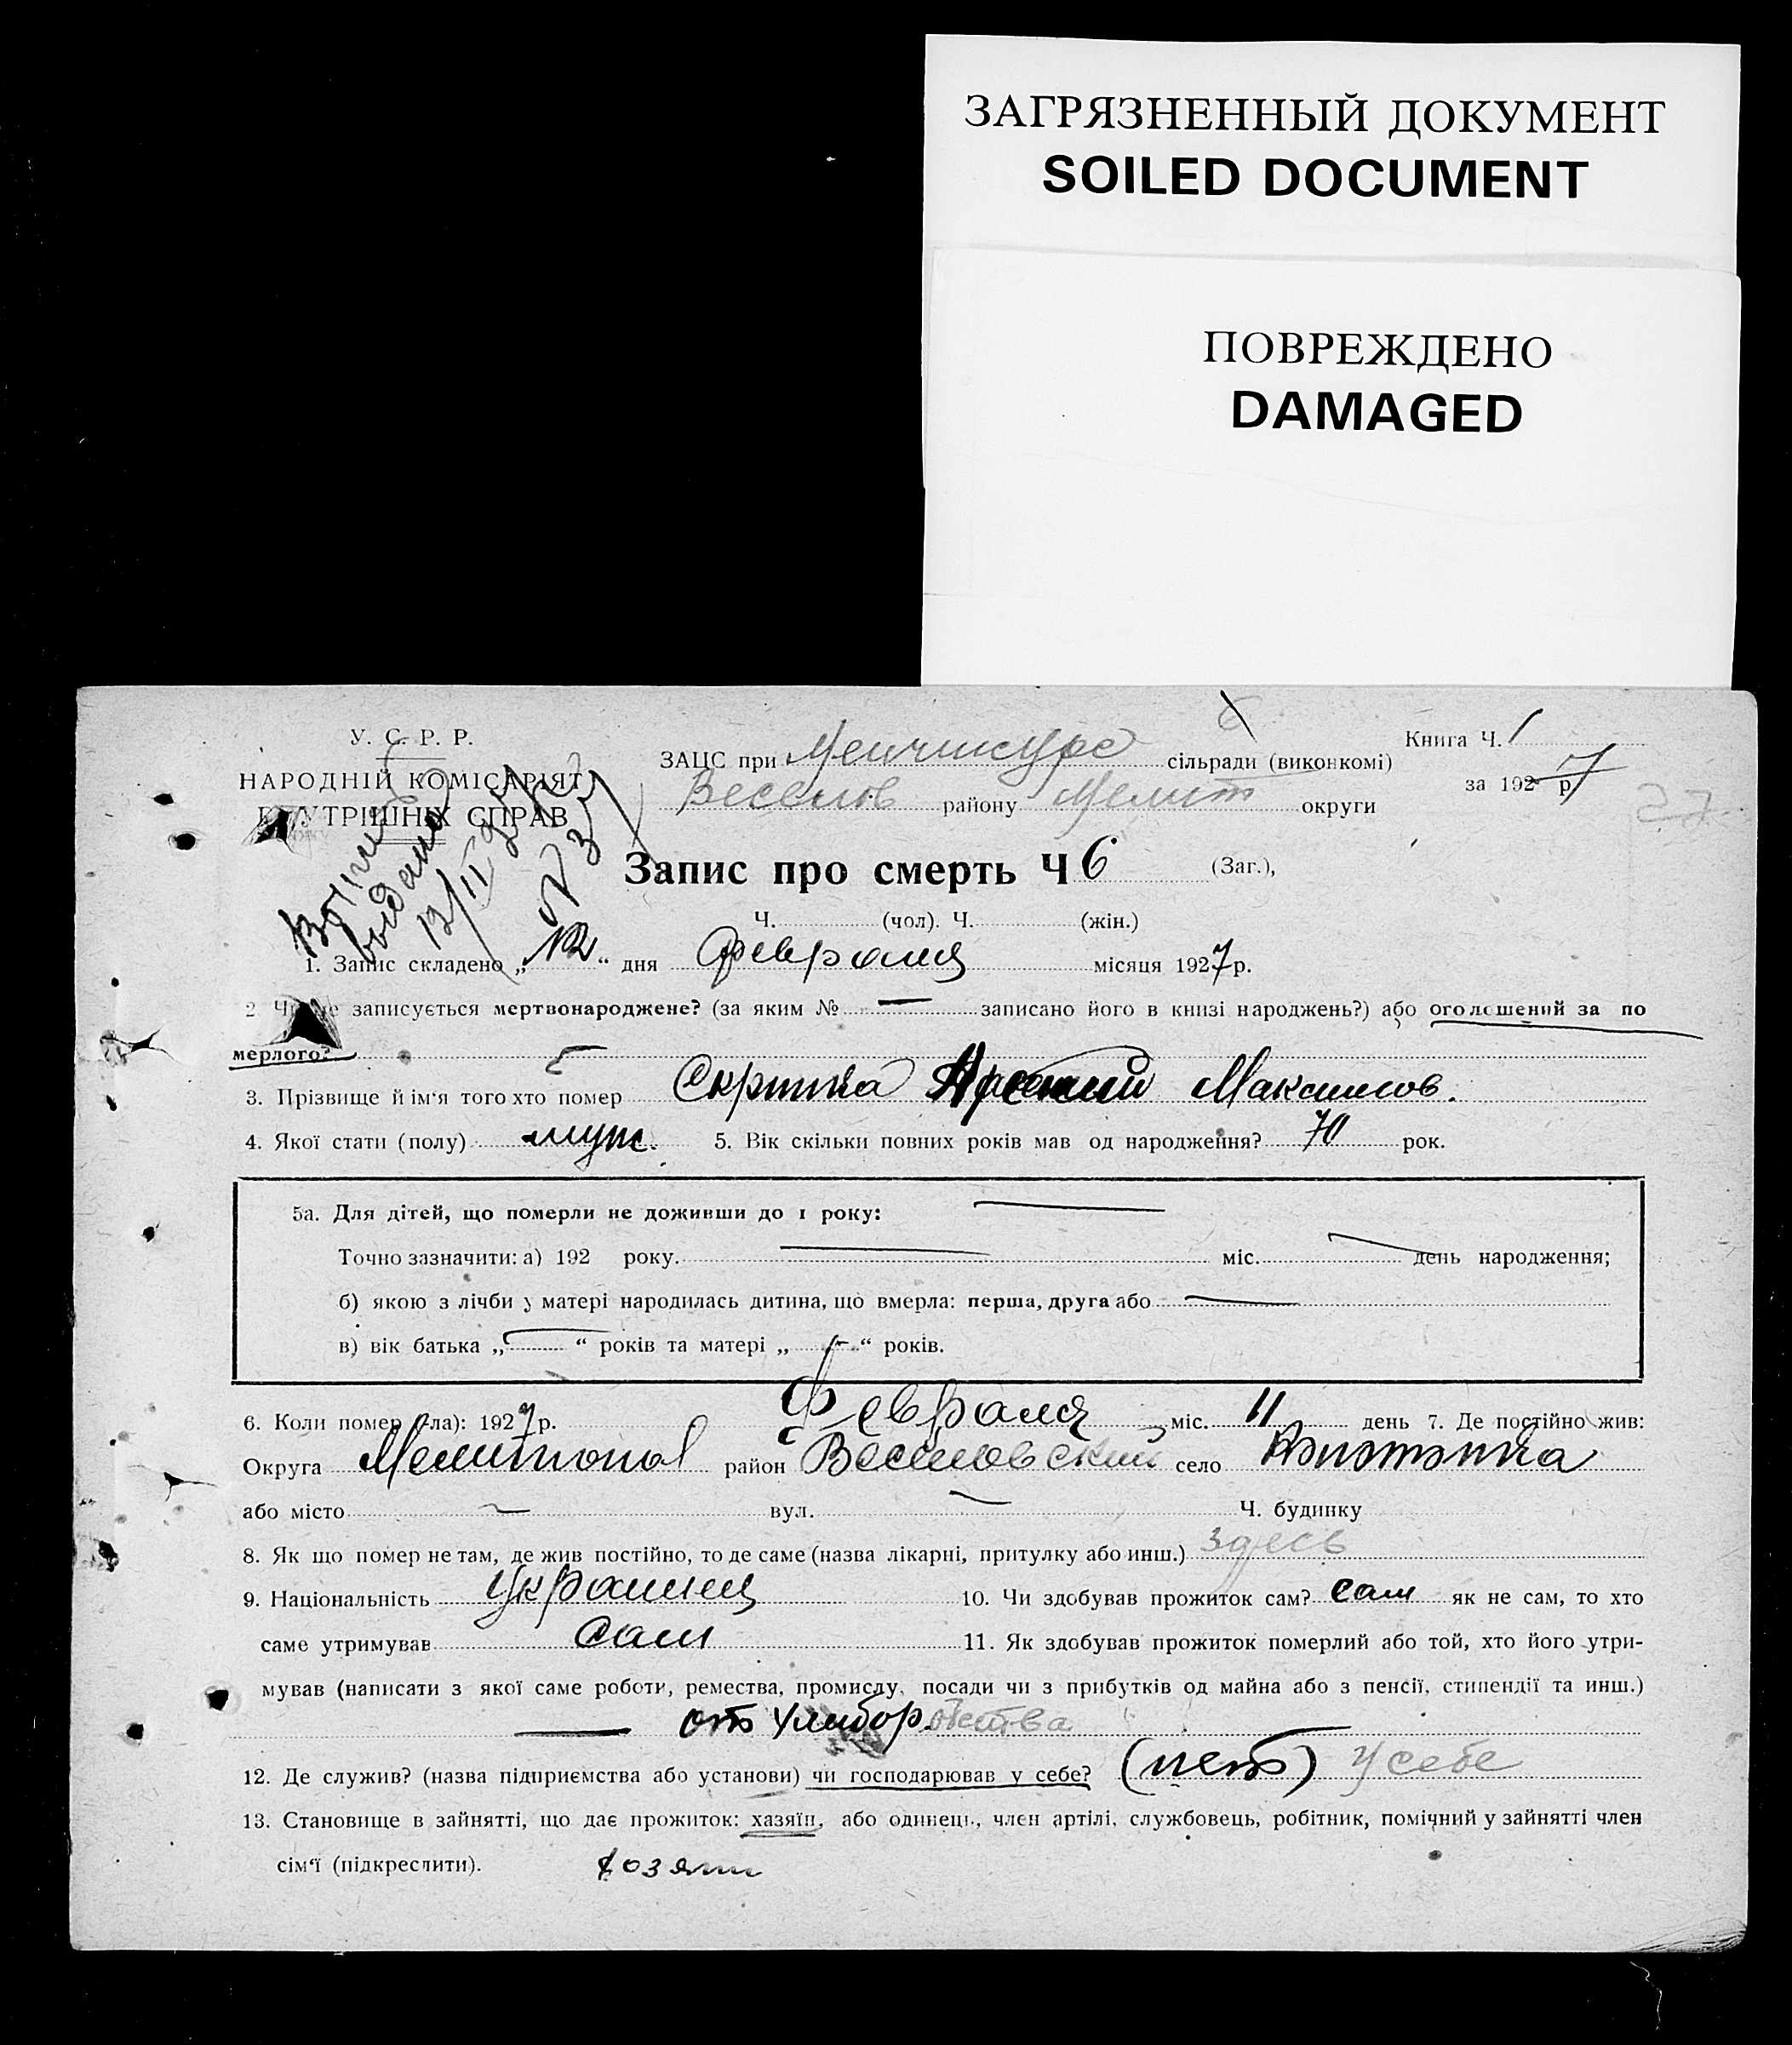 ЗАГРЯЗНЕННЫЙ ДОКУМЕНТ
SOILED DOCUMENT
ПОВРЕЖДЕНО
DAMAGED
У. С. Р. Р.
НАРОДНІЙ КОМІСАРІЯТ
ВНУТРІШНІХ СПРАВ
выдано
12/II
№ 3
ЗАЦС при сільради (виконкомі)
Веселов району Мелит округи
Книга Ч. 1
за 192 р. 7
27
Запис про смерть Ч 6 (Заг.),
Ч. (чол). Ч. (жін.)
1. Запис складено „12“ дня февраля місяця 1927 р.
2 Чи не записується мертвонароджене? (за яким № — записано його в книзі народжень?) або оголошений за по
мерлого?
3. Прізвище й ім'я того хто помер Скрипка Максимов.
4. Якої стати (полу) муж. 5. Вік скільки повних років мав од народження? 70 рок.
5а. Для дітей, що померли не доживши до 1 року: —
Точно зазначити: а) 192 року. — міс. — день народження;
б) якою з лічби у матері народилась дитина, що вмерла: перша, друга або —
в) вік батька „—“ років та матері „—“ років.
6. Коли помер (-ла): 1927 р. Февраля міс. 11 день 7. Де постійно жив:
Округа Мелитопол район Веселовский село
або місто — вул. — Ч. будинку
8. Як що помер не там, де жив постійно, то де саме (назва лікарні, притулку або инш.) здесь
9. Національність украинец 10. Чи здобував прожиток сам? сам як не сам, то хто
саме утримував сам 11. Як здобував прожиток померлий або той, хто його утри-
мував (написати з якої саме роботи, ремества, промислу, посади чи з прибутків од майна або з пенсії, стипендії та инш.)
— от хлебор обства
12. Де служив? (назва підприємства або установи) чи господарював у себе? (нет) У себе
13. Становище в зайнятті, що дає прожиток: хазяїн, або одинець, член артілі, службовець, робітник, помічний у зайнятті член
сім'ї (підкреслити). хозяин